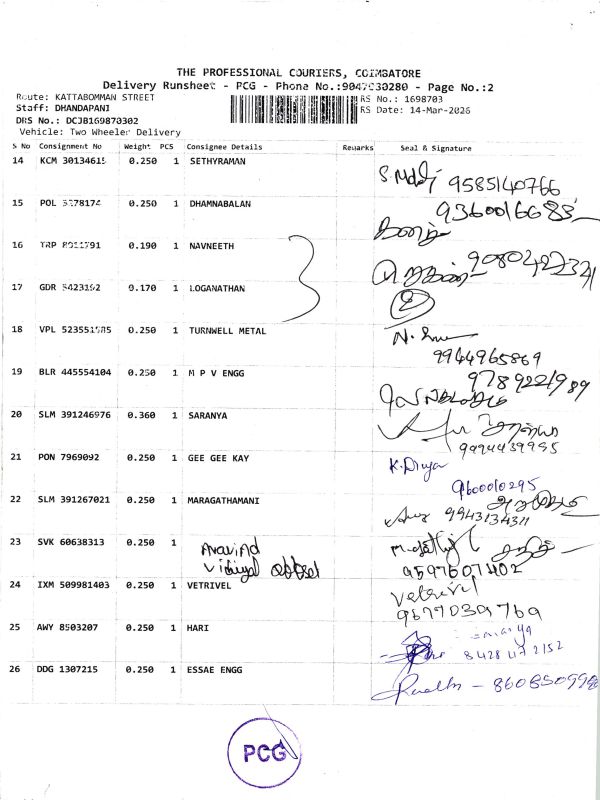 THE PROFESSIONAL COURIERS, COIMBATORE
Delivery Runsheet - PCG - Phone No.:9047030280 - Page No.:2
Route: KATTABOMMAN STREET
Staff: DHANDAPANI
DRS No.: DCJB169870302
Vehicle: Two Wheeler Delivery
RS No.: 1698703
RS Date: 14-Mar-2026
S No Consignment No Weight PCS Consignee Details Remarks Seal & Signature
14 KCM 30134615 0.250 1 SETHYRAMAN 9585140766
15 POL 0.250 1 DHAMNABALAN 9360016683
16 TRP 0.190 1 NAVNEETH
3
17 GDR 1 LOGANATHAN 2
18 VPL 0.250 1 TURNWELL METAL 9944965869
19 BLR 445554104 0.250 1 M P V ENGG 9789221989
20 SLM 391246976 0.360 1 SARANYA
21 PON 7969092 0.250 1 GEE GEE KAY K.Divya 9600010295
22 SLM 391267021 0.250 1 MARAGATHAMANI 9943134311
23 SVK 60638313 0.250 1 Aravind 9597607402
24 IXM 509981403 0.250 1 VETRIVEL Vetrivel
25 AWY 8503207 0.250 1 HARI 8428472152
26 DDG 1307215 0.250 1 ESSAE ENGG
PCG